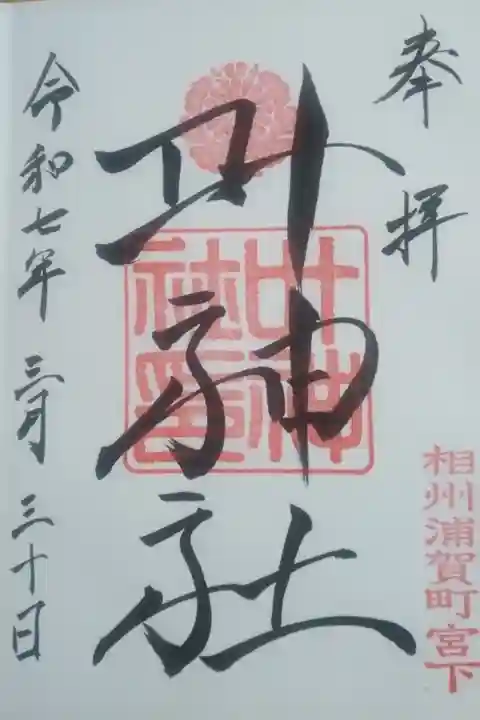 奉拝
相州浦賀町宮下
叶神社
叶神社印
令和七年 三月 三十日